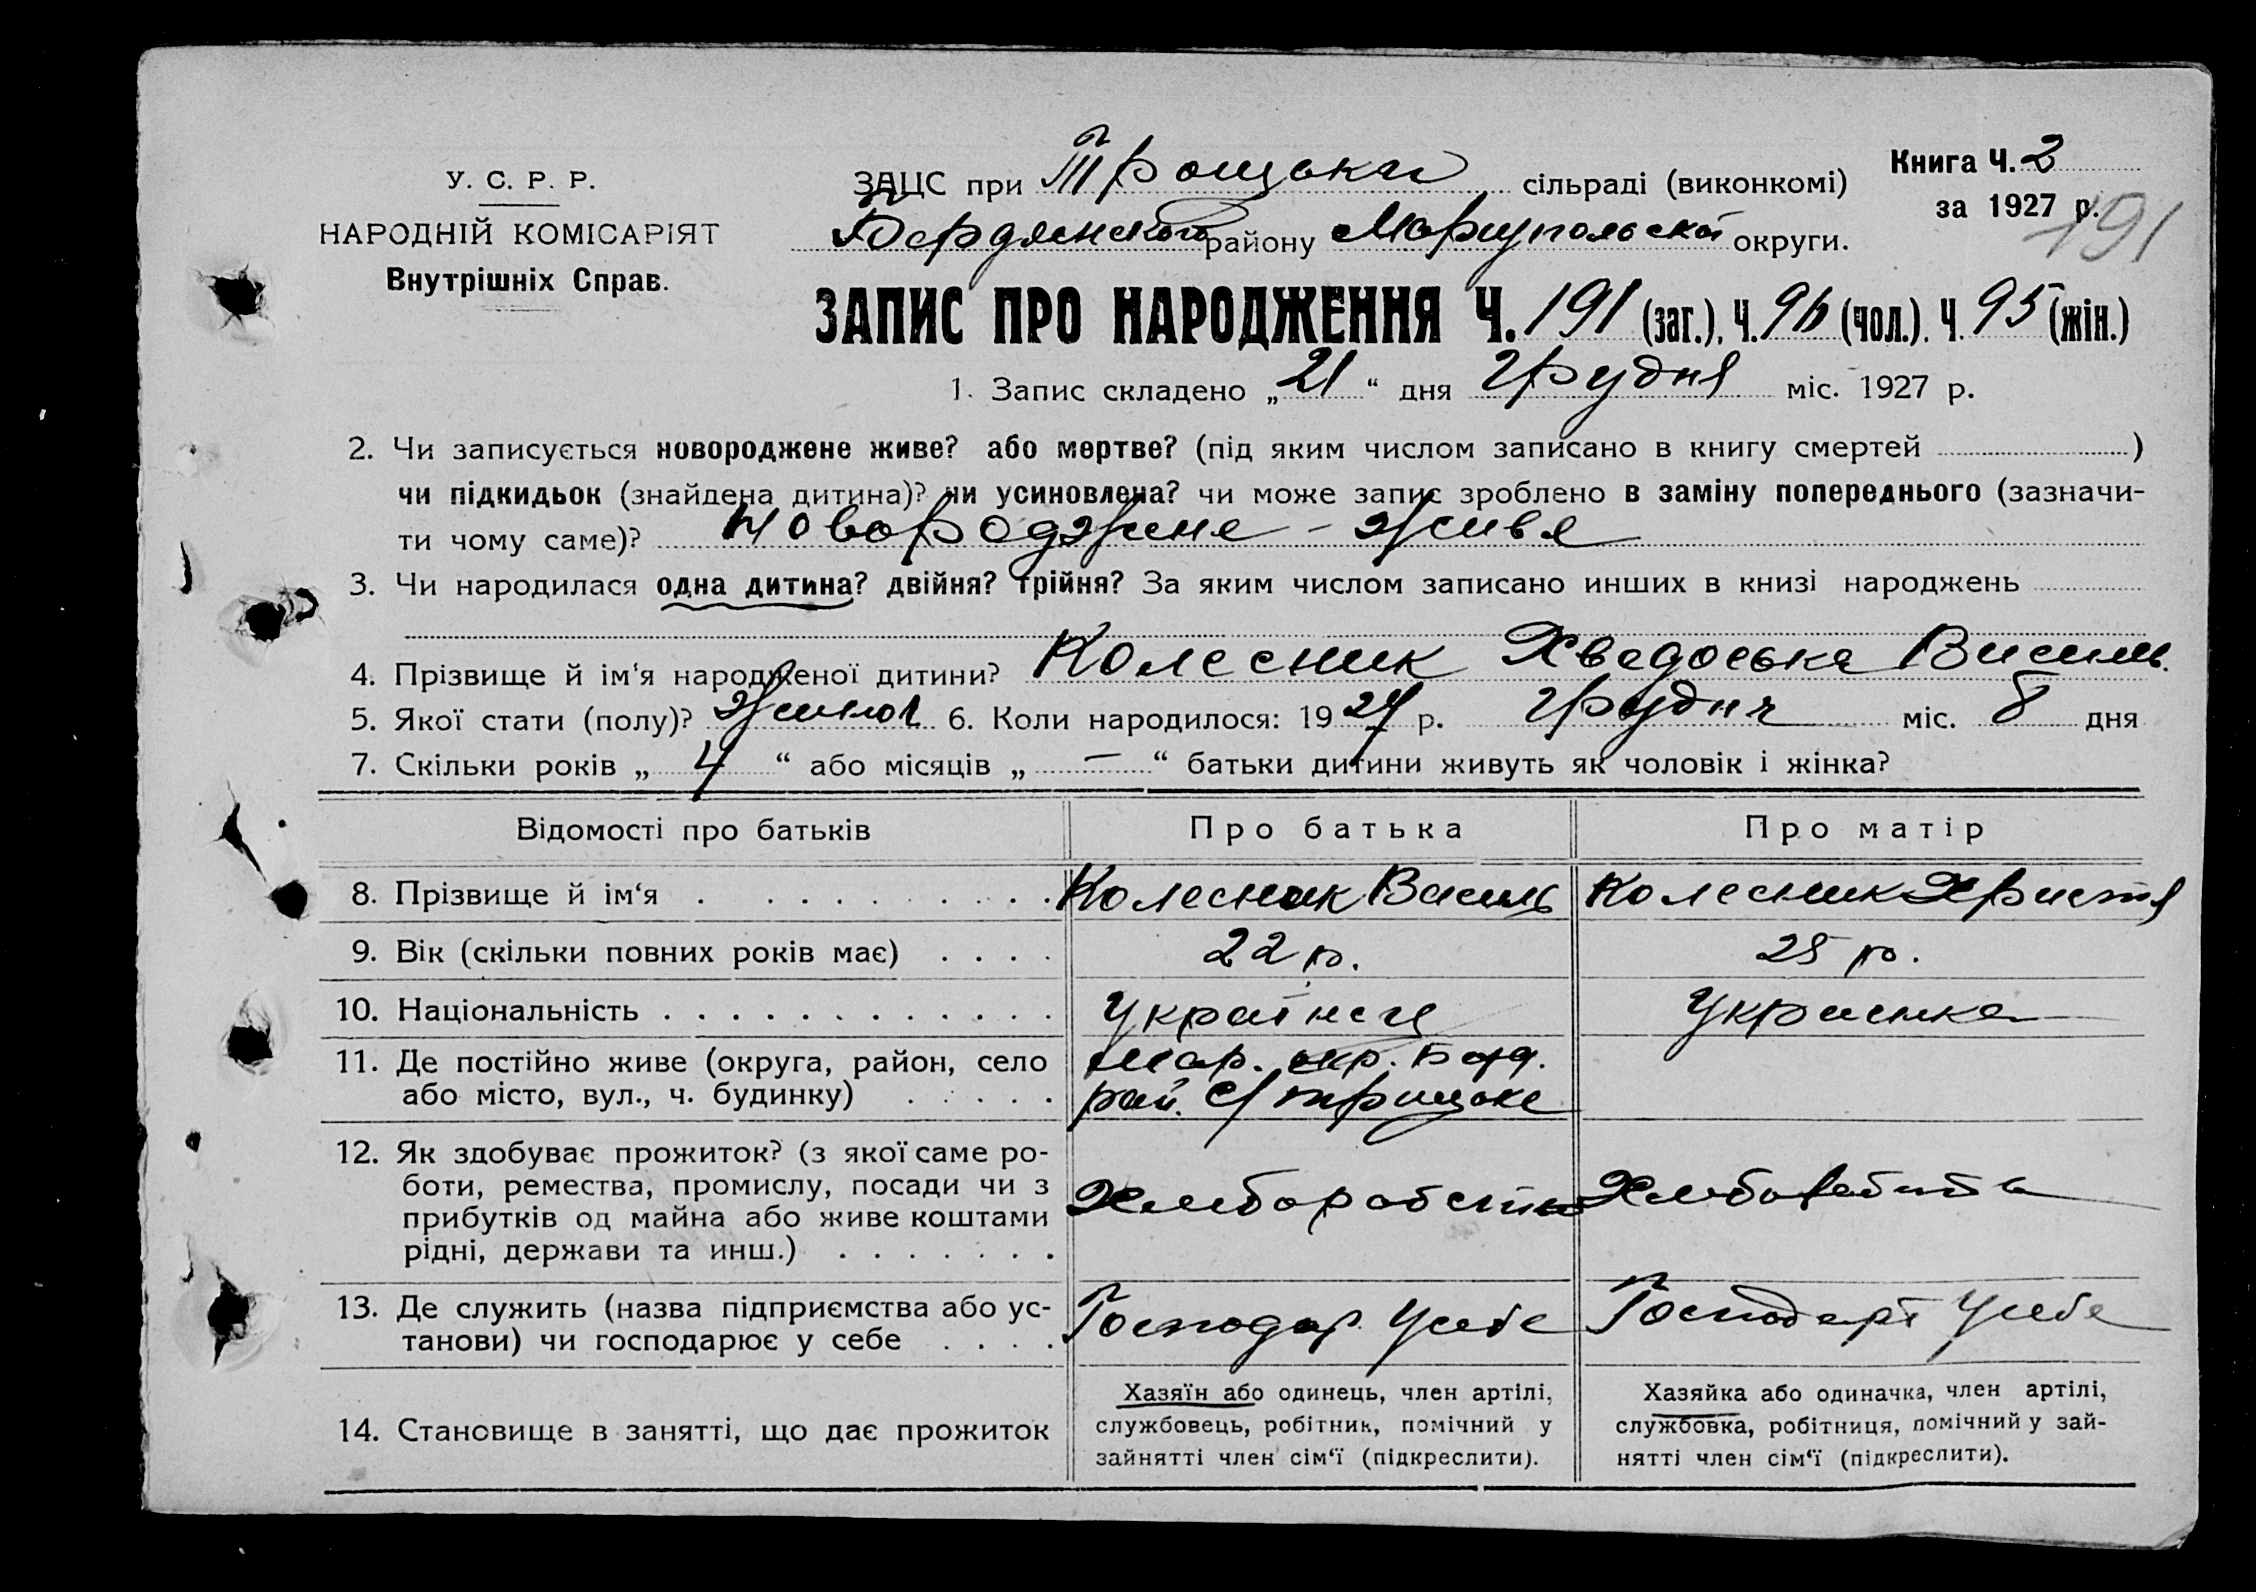 У. С. Р. Р.
НАРОДНІЙ КОМІСАРІЯТ
Внутрішніх Справ.
ЗАЦС при Троцькій сільраді (виконкомі)
Бердянського району Маріупольскої округи.
Книга Ч. 2
за 1927 р.
191
ЗАПИС ПРО НАРОДЖЕННЯ Ч. 191 (заг.), Ч. 96 (чол.). Ч. 95 (жін.)
1. Запис складено „ 21 “ дня Грудня міс. 1927 р.
2. Чи записується новороджене живе? або мертве? (під яким числом записано в книгу смертей )
чи підкидьок (знайдена дитина)? чи усиновлена? чи може запис зроблено в заміну попереднього (зазначи-
ти чому саме)? Новороджене - живе
3. Чи народилася одна дитина? двійня? трійня? За яким числом записано инших в книзі народжень
4. Прізвище й ім‘я народженої дитини? Колесник Хведоська Василь.
5. Якої стати (полу)? 6. Коли народилося: 19 27 р. Грудня міс. 8 дня
7. Скільки років „ 4 “ або місяців „ — “ батьки дитини живуть як чоловік і жінка?
Відомості про батьків Про батька Про матір
8. Прізвище й ім‘я Колесник Василь Колесник Христя
9. Вік (скільки повних років має) 22 р. 25 р.
10. Національність Українец Украинка
11. Де постійно живе (округа, район, село Мар. окр. Берд.
або місто, вул., ч. будинку) рай. с/
12. Як здобуває прожиток? (з якої саме ро-
боти, ремества, промислу, посади чи з
прибутків од майна або живе коштами
рідні, держави та инш.)
13. Де служить (назва підприємства або ус-
танови) чи господарює у себе Господар. Усебе Усебе
14. Становище в занятті, що дає прожиток
Хазяїн або одинець, член артілі,
службовець, робітник, помічний у
зайнятті член сім‘ї (підкреслити).
Хазяйка або одиначка, член артілі,
службовка, робітниця, помічний у зай-
нятті член сім‘ї (підкреслити).